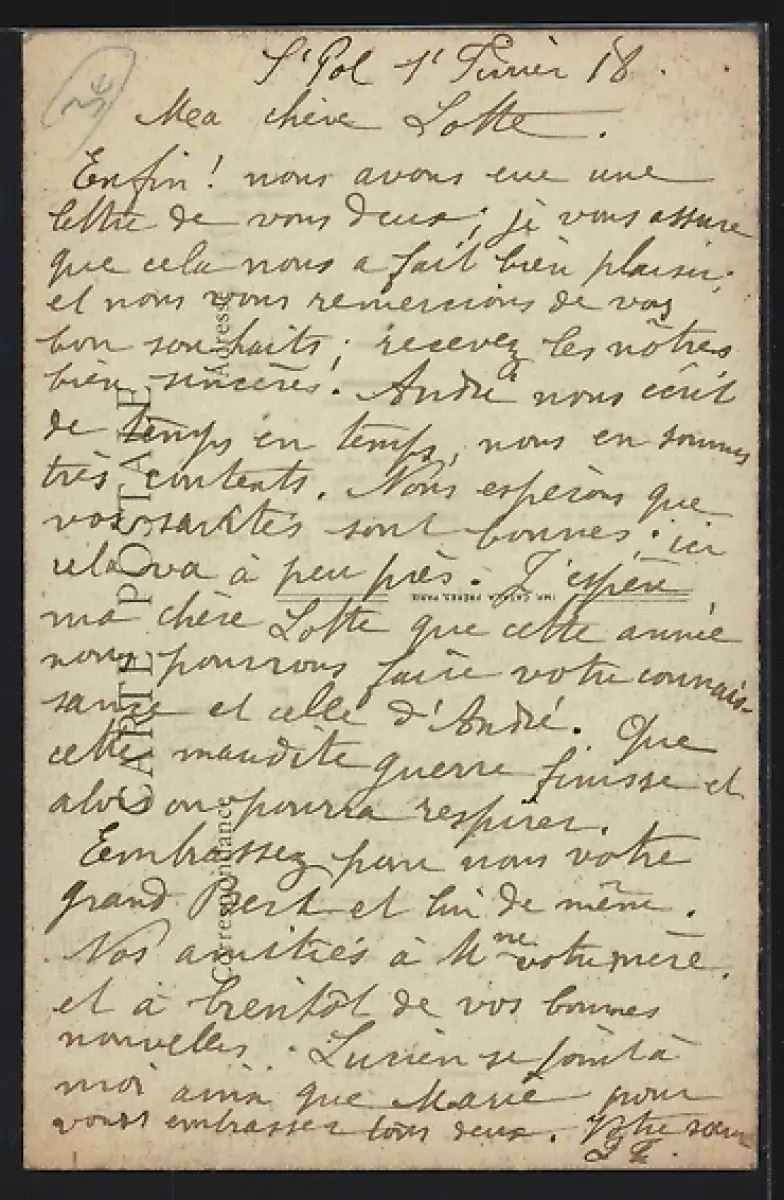 St Pol 1r Fevrier 18.
Mea chère Lotte.
Enfin! nous avons eue une
lettre de vous deux; je vous assure
que cela nous a fait bien plaisir;
et nous vous remercions de vos
bon souhaits; recevez les nôtres
bien sincères! André nous écrit
de temps en temps, nous en sommes
très contents. Nous espérons que
vos santés sont bonnes; ici
cela va à peu près. J'espère
ma chère Lotte que cette année
nous pourrons faire votre connais-
sance et celle d'André. Que
cette maudite guerre finisse et
alors on pourra respirer.
Eembrassez pour nous votre
grand Bert et lui de même.
Nos amitiés à Mme votre mère.
et à bientôt de vos bonnes
nouvelles. Lucien se joint à
moi ainsi que Marie pour
vous embrasser tous deux. Votre sœur
CARTE POSTALE
Correspondance
Adresse
IMP. CATALA FRÈRES, PARIS